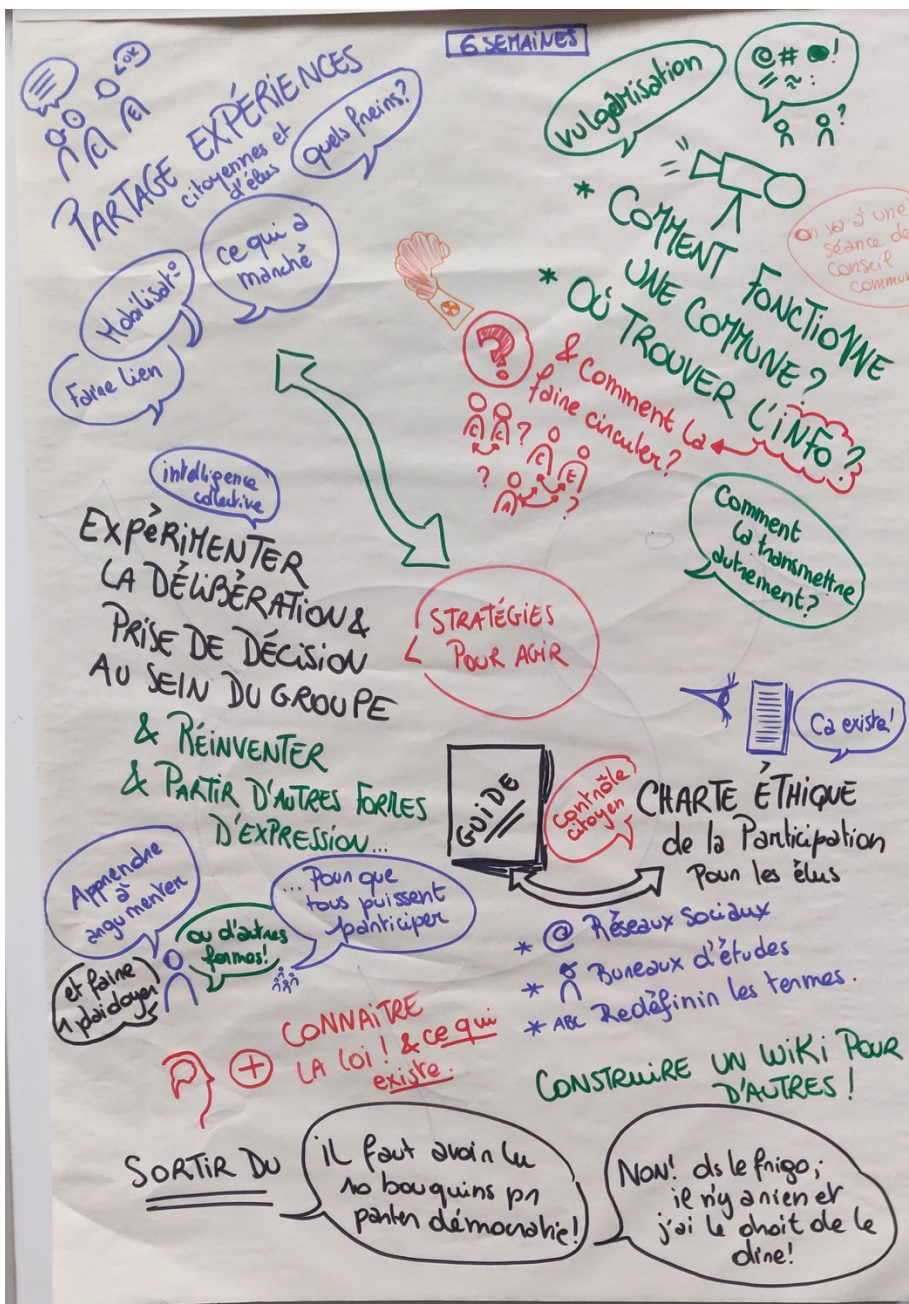 6 SEMAINES
OK
C
E
PARTAGE EXPÉRIENCES
citoyennes et
d'élus
quels freins?
ce qui a
marché
Mobilisat°
Faire lien
vulgarisation
@ # !
// ~ :
?
* COMMENT FONCTIONNE
UNE COMMUNE ?
* OÙ TROUVER L'iNFO ?
On va à une
séance de
conseil
commun
?
& comment la
faire circuler?
?
C
E
?
?
Comment
la transmettre
autrement?
intelligence
collective
EXPÉRIMENTER
LA DÉLIBÉRATION &
PRISE DE DÉCISION
AU SEIN DU GROUPE
& RÉINVENTER
& PARTIR D'AUTRES FORMES
D'EXPRESSION...
STRATÉGIES
POUR AGIR
Ca existe!
GUIDE
Contrôle
citoyen
CHARTE ÉTHIQUE
de la Participation
Pour les élus
* @ Réseaux sociaux
* Bureaux d'études
* ABC Redéfinir les termes.
Apprendre
à
argumenter
et faire
1 plaidoyer
ou d'autres
formes!
... Pour que
tous puissent
participer
+ CONNAÎTRE
LA LOI ! & ce qui
existe.
CONSTRUIRE UN WIKI POUR
D'AUTRES !
SORTIR DU
il faut avoir lu
10 bouquins pr
parler démocratie!
NON! ds le frigo,
il n'y a rien et
j'ai le droit de le
dire!